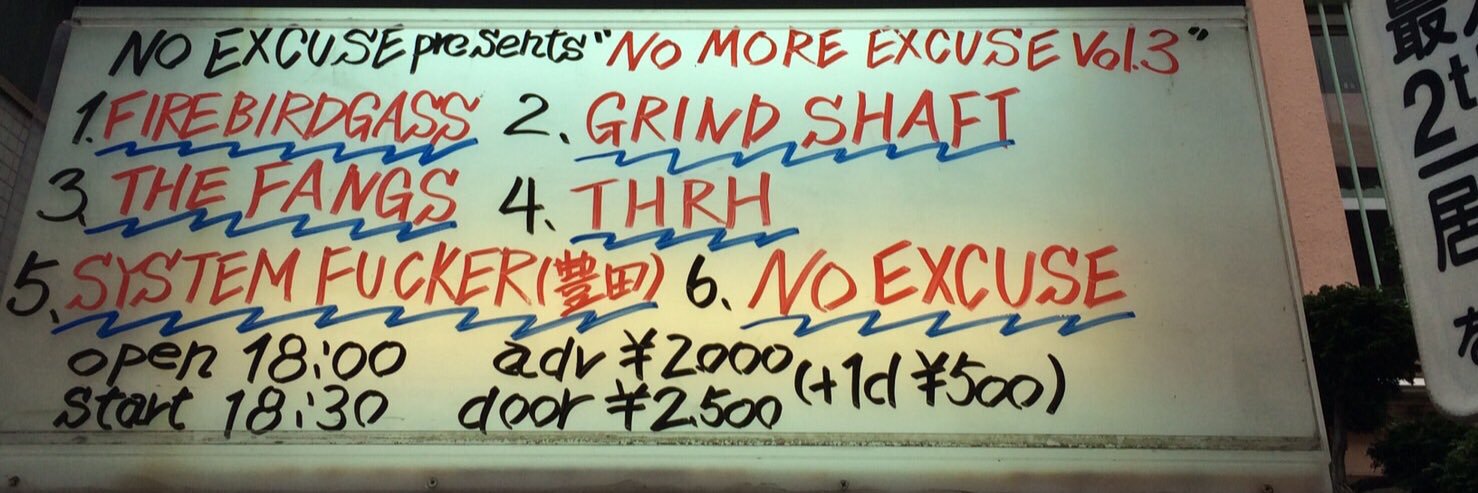 NO EXCUSE presents "NO MORE EXCUSE Vol.3"
1. FIREBIRDGASS 2. GRIND SHAFT
3. THE FANGS 4. THRH
5. SYSTEM FUCKER(豊田) 6. NO EXCUSE
open 18:00 adv ¥2000 (+1d ¥500)
start 18:30 door ¥2500
最
2
居